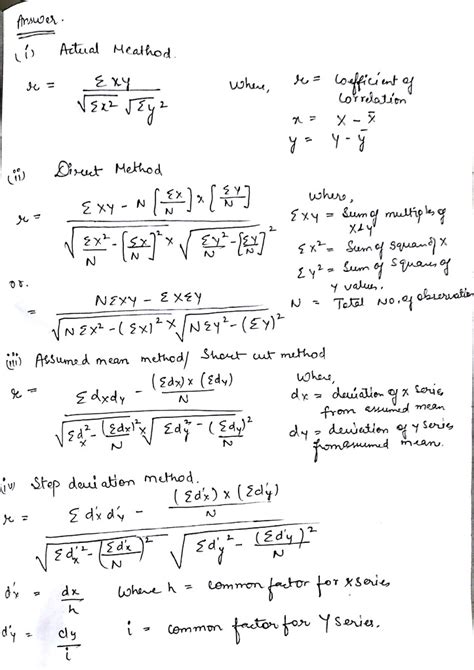 Answer.
(i) Actual Meathod.
r = Σxy / √Σx² √Σy²
Where, r = Coefficient of Correlation
x = X - X̄
y = Y - Ȳ
(ii) Direct Method
r = ΣXY - N [ΣX/N] x [ΣY/N] / √ΣX²/N - [ΣX/N]² x √ΣY²/N - [ΣY/N]²
Where,
ΣXY = Sum of multiples of X&Y
ΣX² = Sum of square of X
ΣY² = Sum of squares of Y values.
N = Total No. of observation
or.
= NΣXY - ΣXΣY / √NΣX² - (ΣX)² x √NΣY² - (ΣY)²
(iii) Assumed mean method/ Short cut method
r = Σdxdy - (Σdx) x (Σdy)/N / √Σd²x - (Σdx)²/N x √Σd²y - (Σdy)²/N
Where,
dx = deviation of X series from assumed mean
dy = deviation of Y series from assumed mean.
(iv) Step deviation method.
r = Σd'x d'y - (Σd'x) x (Σd'y)/N / √Σd'x² - (Σd'x)²/N √Σd'y² - (Σd'y)²/N
d'x = dx/h where h = common factor for X series
d'y = dy/i i = common factor for Y series.